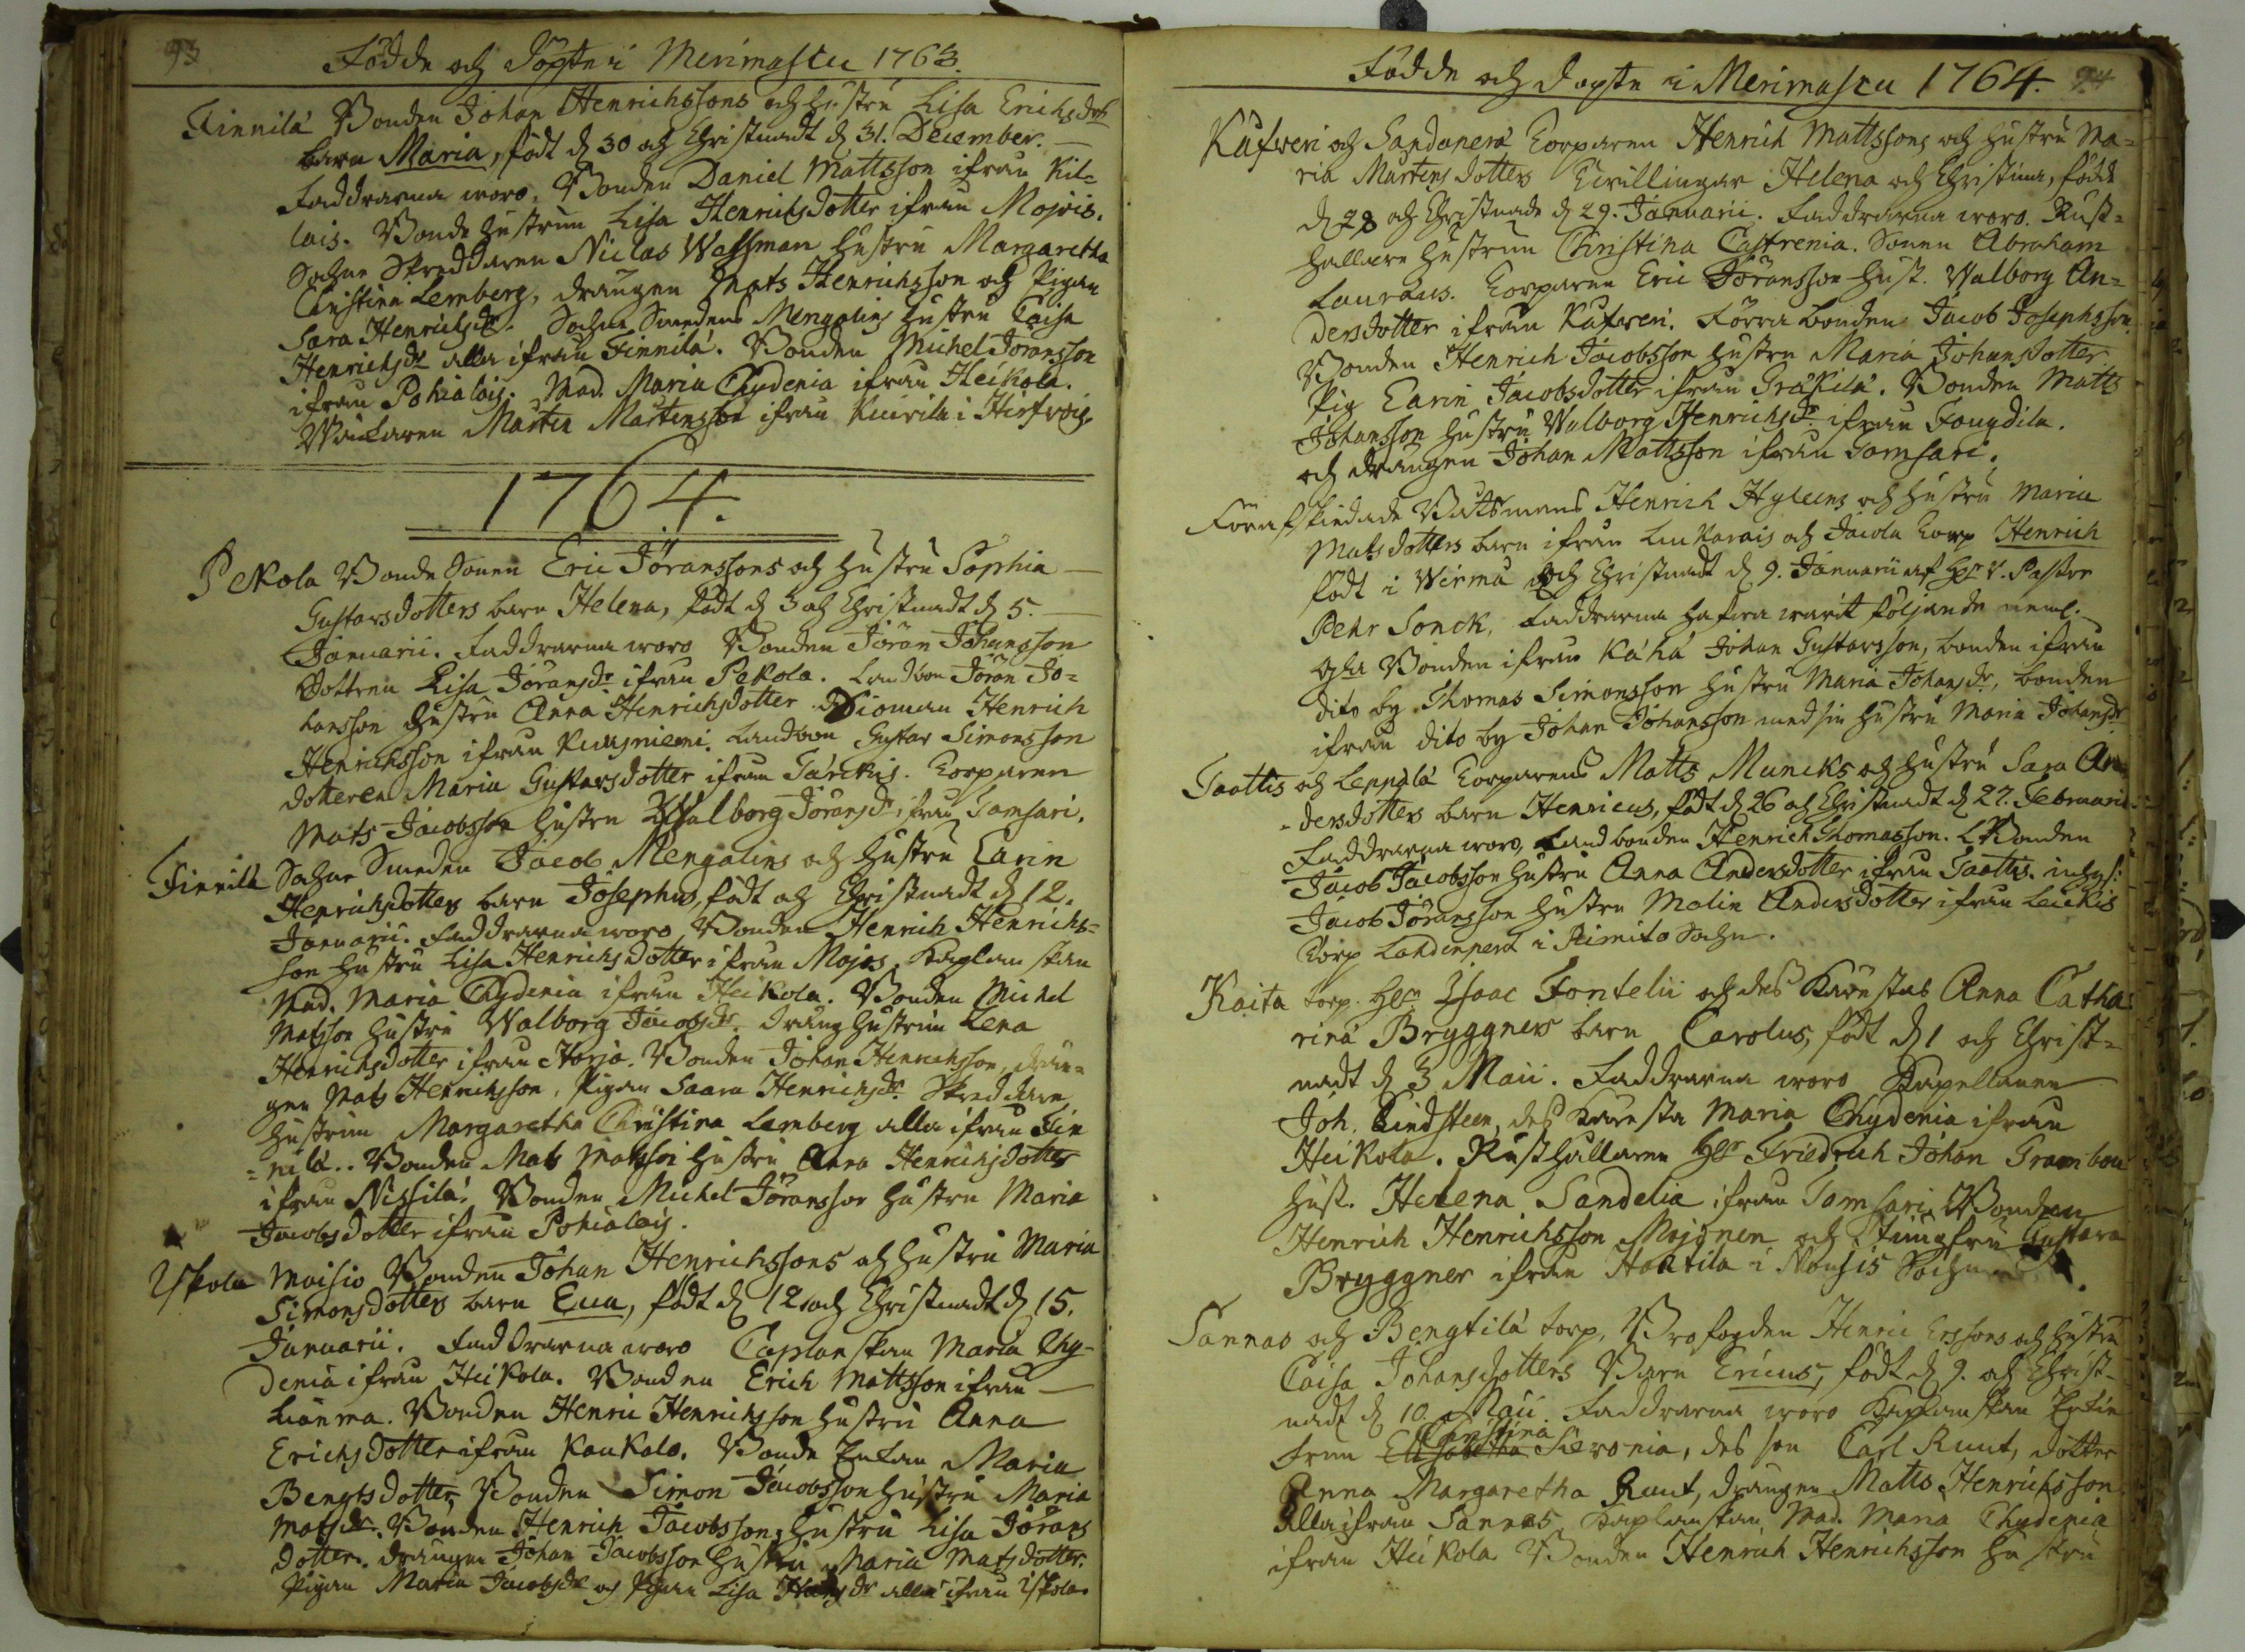 93
Födde och Döpte i Merimasku 1763.
Finnilä Bonden Johan Henrichssons och hustru Lisa Erichsdrs
barn Maria, födt d 30 och Christnadt d 31. December.
Faddrarna woro, Bonden Daniel Mattsson ifrån Kil=
lais. Bonde hustrun Lisa Henrichsdotter ifrån Mojois.
Sochne Skreddaren Niclas Wassman hustru Margaretha
Christina Lemberg, drängen Mats Henrichsson och Pigan
Sara Henrichsdr. Sochne Smedens Mengalins hustru Caisa
Henrichsdr alla ifrån Finnilä. Bonden Michel Joransson
ifrån Pohialais. Mad. Maria Chydenia ifrån Heikola.
Mårten Mårtensson ifrån i
1764.
Pekola Bonde Sonen Eric Jöranssons och hustru Sophia
Gustavsdotters barn Helena, födt d 3 och Christnadt d 5.
Januarii. Faddrarna woro Bonden Jöran Johansson
Dottren Lisa Joransdr ifrån Pekola. Landbon Jöran Jo=
hansson hustru Anna Henrichsdotter Henrich
Henrichsson ifrån Landbon Gustav Simonsson
dotteren Maria Gustavsdotter ifrån Tärckis. Torparen
Mats Jacobsson hustru Walborg Joransdr ifrån Samsari.
Finnilä Sochne Smeden Jacob Mengalins och hustru Carin
Henrichsdotters barn Josephus, födt och Christnadt d 12.
Januarii. Faddrarna woro Bonden Henrich Henrichs=
son hustru Lisa Henrichsdotter ifrån Mojos. Kaplanskan
Mad. Maria Chydenia ifrån Heikola. Bonden Michel
Matsson hustru Walborg Jacobsdr. Dräng hustrun Lena
Henrichsdotter ifrån Korja. Bonden Johan Henrichsson, drän=
gen Mats Henrichsson, Pigan Saara Henrichsdr. Skreddare
hustrun Margaretha Christina Lemberg alla ifrån Fin
=nilä.. Bonden Mats Matsson hustru Anna Henrichsdotter
ifrån Nissilä. Bonden Michel Jöransson hustru Maria
Jacobsdotter ifrån Pohialais.
Iskola Moisio Bonden Johan Henrichssons och hustru Maria
Simonsdotters barn Eua, födt d 12 och Christnadt d 15.
Januarii. Faddrarna woro Caplanskan Maria Chy-
denia ifrån Heikola. Bonden Erich Mattsson ifrån
Lianma. Bonden Henric Henrichsson hustru Anna
Erichsdotter ifrån Kaukola. Bonde Enkan Maria
Bengtsdotter, Bonden Simon Jacobsson hustru Maria
Matsdr. Bonden Henrich Jacobsson, hustru Lisa Jorans
dotter. drängen Johan Jacobsson hustru Maria Matsdotter.
Pigan Maria Jacobsdr och Pigan Lisa Hansdr alla ifrån Iskola.
Födde och döpte i Merimasku 1764. 94
Kufweri och Sandanera Torparen Henrich Mattssons och hustru Ma=
ria Mårtensdotters Twillingar Helena och Christina, födde
d 28 och Christnade d 29. Januarii. Faddrarna woro. Rust=
hållare hustrun Christina Castrenia. Sonen Abraham
Lauraeus. Torparen Eric Jöransson hust. Walborg An=
dersdotter ifrån Kufweri. Förra bonden Jacob Josephsson
Bonden Henrich Jacobsson hustru Maria Johansdotter
Pig Carin Jacobsdotter ifrån Gräkilä. Bonden Matts
Johansson hustru Walborg Henrichsdr. ifrån Fougdila.
och drängen Johan Mattsson ifrån Samsari.
Förafskiedade Båtsmans Henrich Hyleens och hustru Maria
Matsdotters barn ifrån Lukarais och Jacola torp Henrich
födt i Wirmo och Christnadt d 9. Januarii af Hr V. Pastor
Pehr Sonck, Faddrarna hafwa warit följande neml.
Bonden ifrån Kähä Johan Gustavsson, bonden ifrån
dito by Thomas Simonsson hustru Maria Johansdr, bonden
ifrån dito by Johan Johansson med sin hustru Maria Johansdr
Taattis och Leppälä Torparens Matts Muncks och hustru Sara An
-dersdotters barn Henricus, födt d 26 och Christnadt d 27. Februarii
Faddrarna woro, Landbonden Henrich Thomasson. Bonden
Jacob Jacobsson hustru Anna Andersdotter ifrån Taattis. inhys:
Jacob Jöransson hustru Malin Andersdotter ifrån Leickis
torp Lahdenperä i Rimito Sochn.
Kaita torp. Hr Isaac Fontelii och des Käresta Anna Catha
rina Bryggners barn Carolus, födt d 1 och Christ=
nadt d 3 Maii. Faddrarna woro Kapellanen
Joh. Lindsteen, des Käresta Maria Chydenia ifrån
Heikola. Rusthållaren Hr Friedrich Johan Grambou
Hust. Helena Sandelia ifrån Samsari. Bonden
Henrich Henrichsson Mojonen och Jungfru Gustava
Bryggner ifrån Haatila i Nousis Sochn.
Sannas och Bengtilä torp, Brofogden Henric Erssons och hustru
Caisa Johansdotters Barn Ericus, födt d 9. och Christ-
nadt d 10. Maii. Faddrarna woro Kaplanskan Enkie
Christina
frun Elisabetha Sieronia, des son Carl Ruut, dotter
Anna Margaretha Ruut, drängen Matts Henrichsson
alla ifrån Sannas, Kaplanskan Mad. Maria Chydenia
ifrån Heikola Bonden Henrich Henrichsson hustru